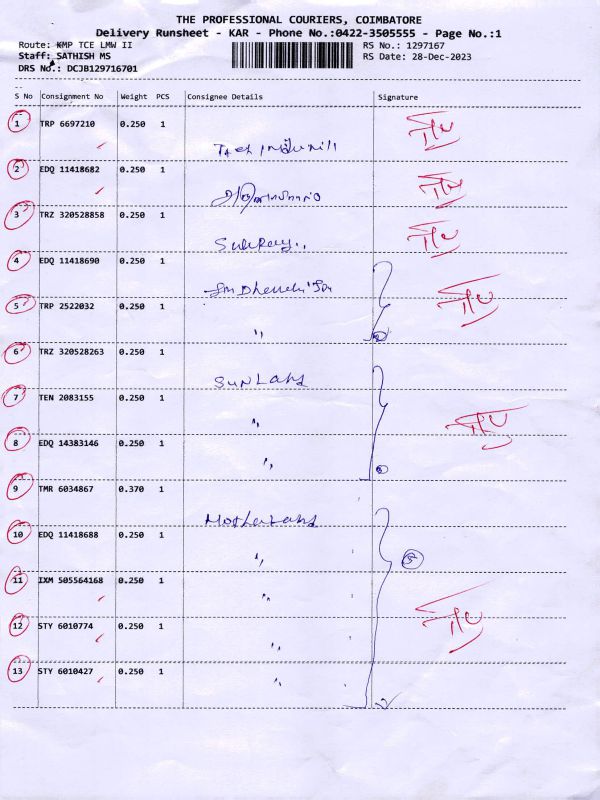 THE PROFESSIONAL COURIERS, COIMBATORE
Delivery Runsheet - KAR - Phone No.:0422-3505555 - Page No.:1
Route: KMP TCE LMW II
RS No.: 1297167
Staff: SATHISH MS
RS Date: 28-Dec-2023
DRS No.: DCJB129716701
S No Consignment No Weight PCS Consignee Details Signature
1 TRP 6697210 0.250 1
2 EDQ 11418682 0.250 1
3 TRZ 320528858 0.250 1
4 EDQ 11418690 0.250 1
5 TRP 2522032 0.250 1
"
6 TRZ 320528263 0.250 1
Sun Land
7 TEN 2083155 0.250 1
"
8 EDQ 14383146 0.250 1
"
9 TMR 6034867 0.370 1
10 EDQ 11418688 0.250 1
"
5
11 IXM 505564168 0.250 1
"
12 STY 6010774 0.250 1
"
13 STY 6010427 0.250 1
"